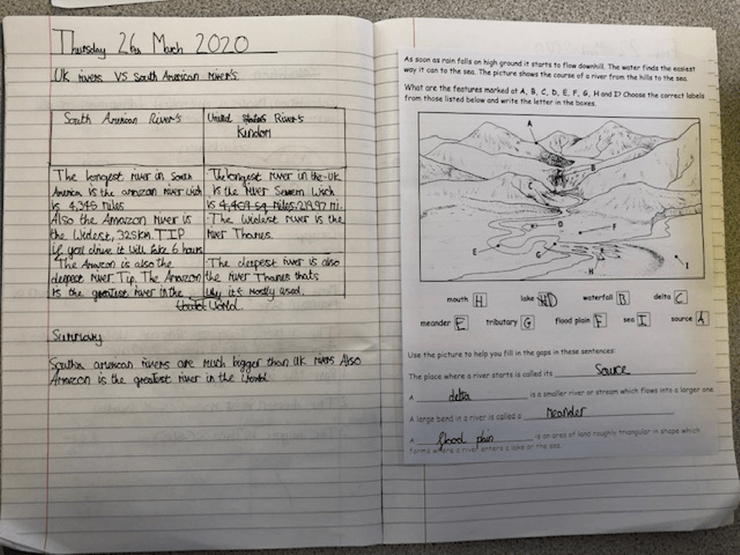 Thursday 26th March 2020
UK rivers VS South American river's
South American River's
United States River's
Kindom
The longest river in South
America is the amazon river wich
is 4,345 miles
Also the Amazon river is
the Widest, 325km. TIP
if you drive it will take 6 hours
The Amazon is also the
deepest river. Tip. The Amazon
is the greatest river in the
World.
The longest river in the UK
is the River Severn Wich
is 4,409 sq miles, 219.97 mi.
The Widest river is the
River Thames.
The deepest river is also
the river Thames thats
why it is mostly used.
Summary
South american rivers are much bigger than UK rivers Also
Amazon is the greatest river in the World
As soon as rain falls on high ground it starts to flow downhill. The water finds the easiest
way it can to the sea. The picture shows the course of a river from the hills to the sea.
What are the features marked at A, B, C, D, E, F, G, H and I? Choose the correct labels
from those listed below and write the letter in the boxes.
A
B
C
D
F
E
G
H
I
mouth H lake D waterfall B delta C
meander E tributary G flood plain F sea I source A
Use the picture to help you fill in the gaps in these sentences:
The place where a river starts is called its Source
A delta is a smaller river or stream which flows into a larger one
A large bend in a river is called a Meander
A flood plain is an area of land roughly triangular in shape which
forms where a river enters a lake or the sea.